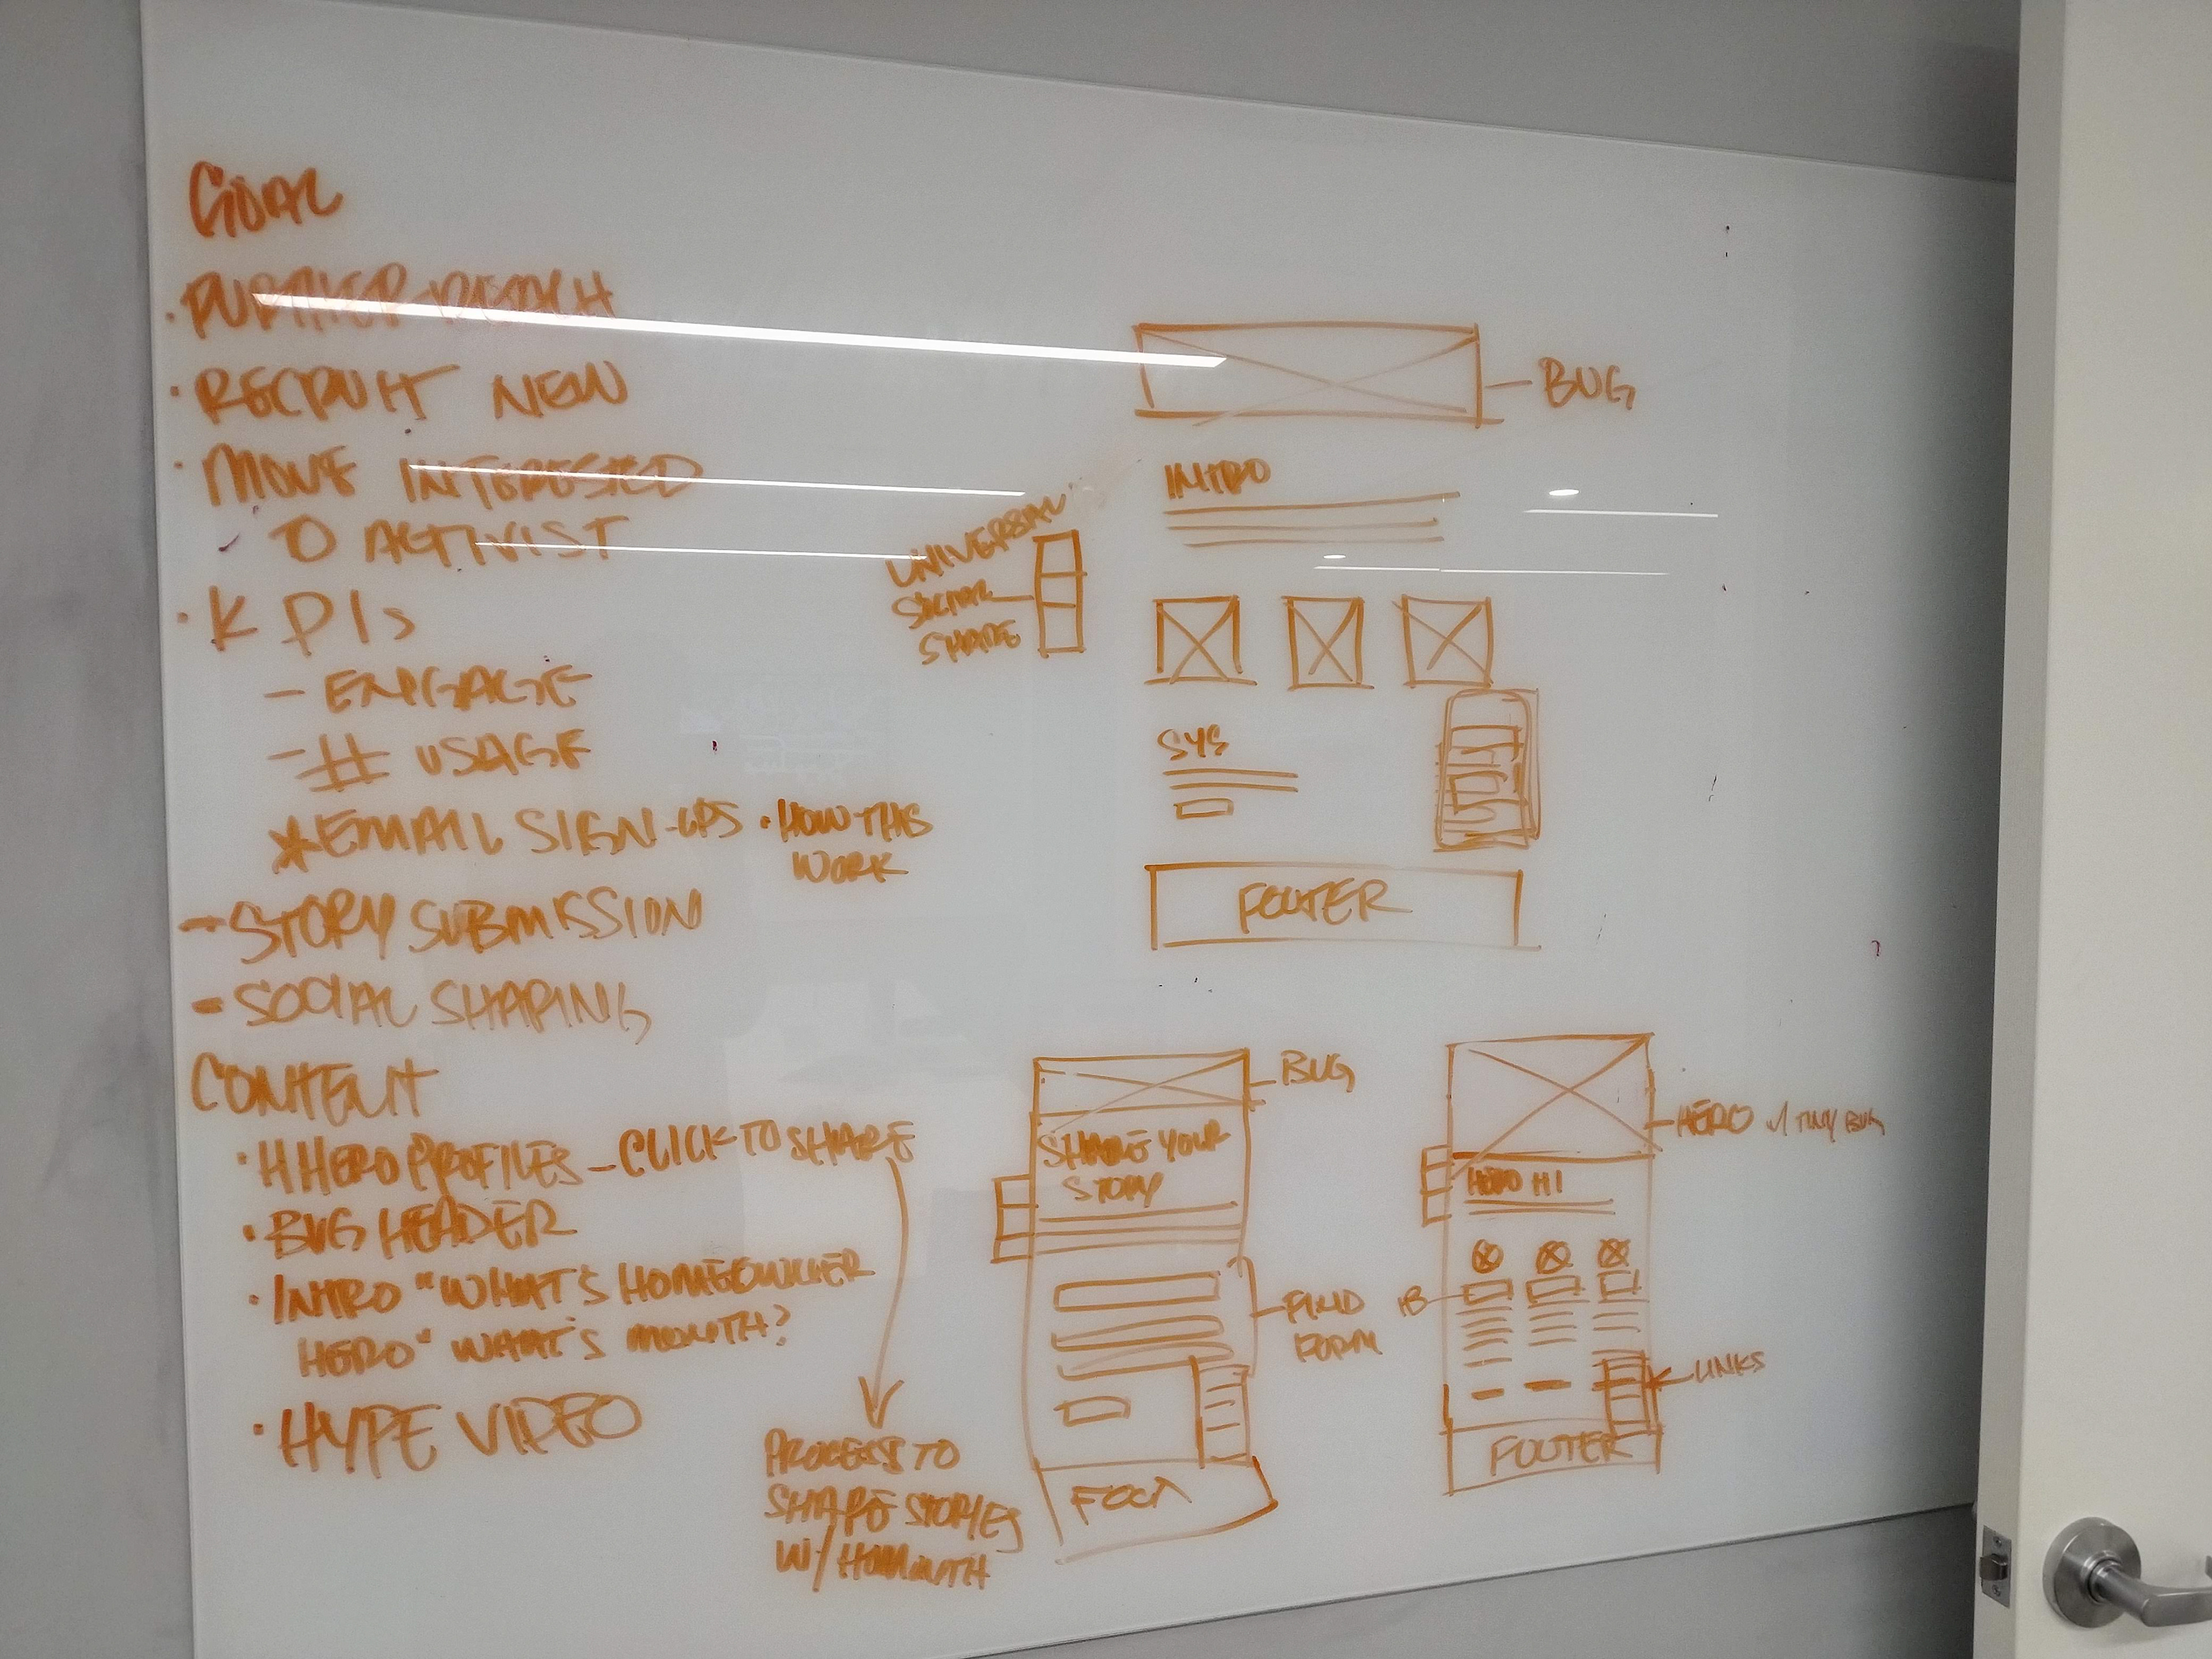 GOAL
• FURTHER REACH
• RECRUIT NEW
• MOVE INTERESTED
TO ACTIVIST
• KPIs
- ENGAGE
- # USAGE
* EMAIL SIGN-UPS • HOW THIS
WORK
- STORY SUBMISSION
- SOCIAL SHARING
CONTENT
• HHERO PROFILES - CLICK TO SHARE
• BUG HEADER
• INTRO "WHAT'S HOMEOWNER
HERO" WHAT'S MONTH?
• HYPE VIDEO
PROCESS TO
SHARE STORIES
W/ HOMONTH
BUG
INTRO
UNIVERSAL
SOCIAL
SHARE
SYS
FOOTER
BUG
SHARE YOUR
STORY
FORM
FOOT
HERO W/ TINY BUG
HERO H1
LINKS
FOOTER